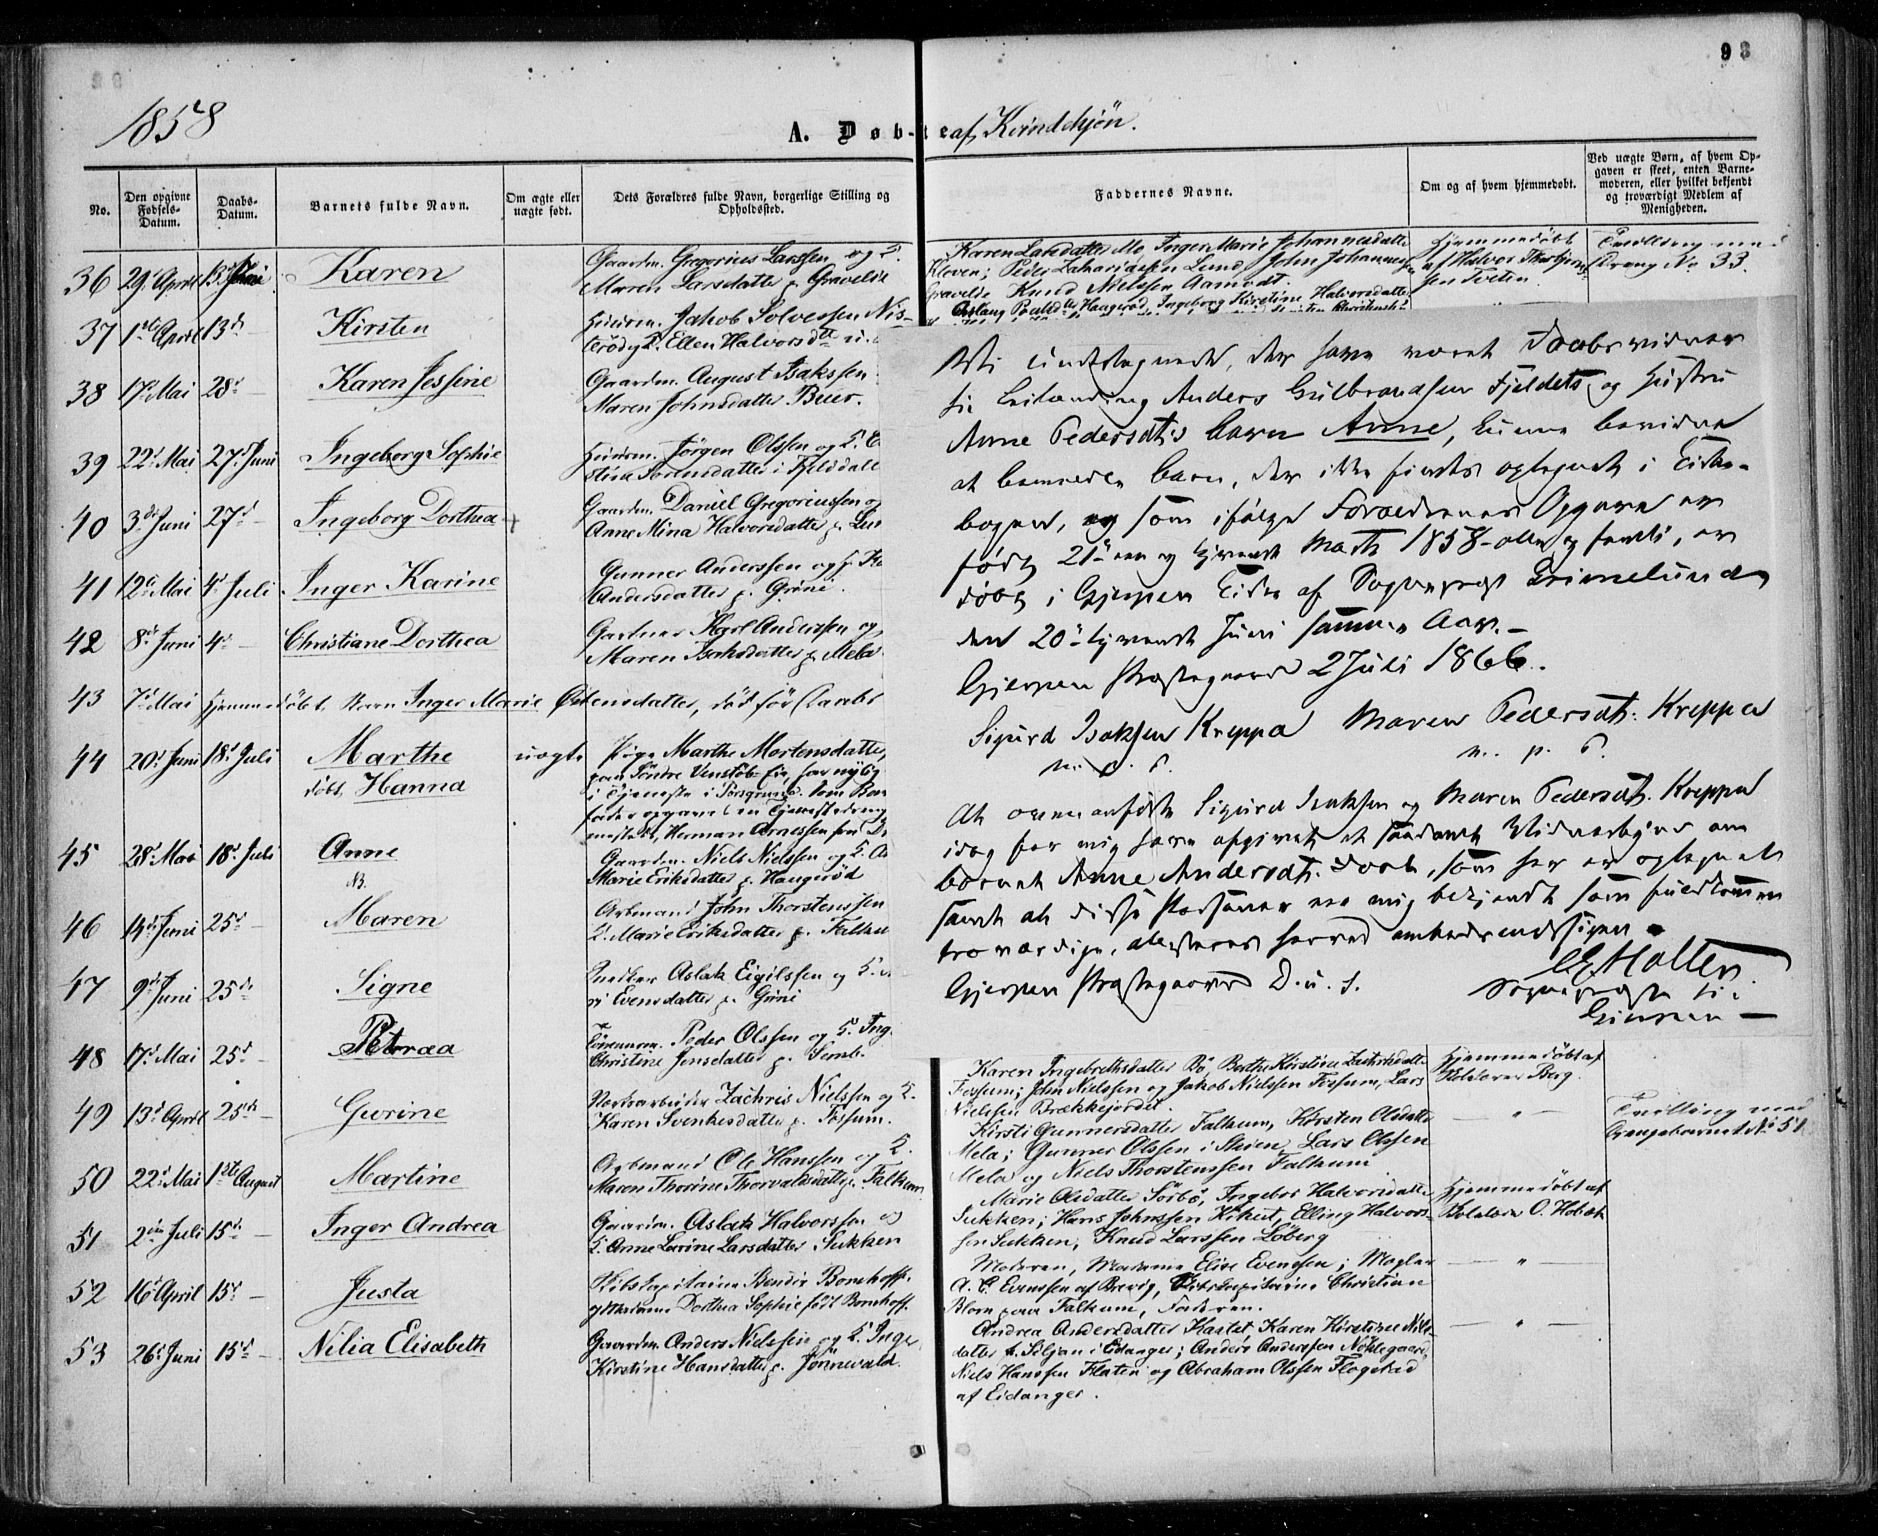 93
1858
A. Døbte af Kvindekjön.
No.
Den opgivne Fødsels-Datum.
Daabs-Datum.
Barnets fulde Navn.
Om ægte eller uægte født.
Dets Forældres fulde Navn, borgerlige Stilling og Opholdssted.
Faddernes Navne.
Om og af hvem hjemmedøbt.
Ved uægte Børn, af hvem Opgaven er skeet, enten Barnemoderen, eller hvilket bekjendt og troværdigt Medlem af Menigheden.
36 29d April 13d Juni Karen
Gaardm. Gregorius Larssen og H.
Maren Larsdatter p. Gravelde
Karen Larsdatter Mo, Inger Marie Johannesdatter
Kleven; Peder Zakariassen Lund, John Johannessen
Gravelde Knud Nielssen Aamodt.
Hjemmedöbt
af Halvor Thorbjörn-
sen Tveten
Tvilling med
Dreng No 33.
37 1ste April 13d Kirsten
Huusm. Jakob Solvessen Nis-
terød, H. Ellen Halvorsdtr
Aslaug Poulsdtr Haugerød, Ingeborg Kirstine Halvorsdatter
38 17d Mai 28d Karen Jessine
Gaardm. August Isakssen
Maren Johnsdatter Brur.
39 22d Mai 27d Juni Ingeborg Sophie
Huusm. Jörgen Olssen og H.
stine Sörensdatter i Fjelddall
40 3die Juni 27d Ingeborg Dorthea
Gaardm. Daniel Gregoriussen og
Anne Mina Halvorsdatter p.
41 12d Mai 4d Juli Inger Karine
Gunner Anderssen og H. Ka
Andersdatter p. Grini.
42 8d Juni 4d Christiane Dorthea
Gartner Karl Anderssen og
Maren Isaksdatter p. Mela
43 7d Mai hjemmedöbt, Navn Inger Marie Östensdatter, död för Daabs
44 20d Juni 18d Juli Marthe
döbt Hanna
uægte
Pige Marthe Mortensdatter,
paa Söndre Venstöb-Eie, har nylig
i Tjeneste i Porsgrund. Som Barne
fader opgaves en Tjenestedreng
sammesteds, Herman Arnessen fra
45 28d Mai 18d Juli Anne
NB.
Gaardm. Niels Nielssen og H.
Marie Eriksdatter p. Haugerød
46 14d Juni 25d Maren
Arbmand John Thorstenssen
H. Marie Eriksdatter p. Falkum
47 9d Juni 25d Signe
Snedker Aslak Eigilssen og H.
Evensdatter p. Grini
48 17d Mai 25d Petraa
Tömmerm. Peder Olssen og H. Ing.
Christine Jensdatter p. Semb.
Karen Ingebrethsdatter Bö, Berthe Kirstine Zachrisdatter
Fossum; John Nielssen og Jakob Nielssen Fossum, Lars
Nielssen Brækkejordet.
Hjemmedöbt af
Berg.
49 13d April 25d Gurine
Værkarbeider Zachris Nielssen og H.
Karen Svenkesdatter p. Fossum.
Kirsti Gunnersdatter Falkum, Kirsten Olsdatter
Mela; Gunner Olssen i Skien, Lars Olssen
Mela og Niels Thorstenssen Falkum.
Tvilling med
Drengebarnet No 51
50 22d Mai 1ste August Martine
Arbmand Ole Hanssen og H.
Maren Thorine Thorvaldsdatter p. Falkum
Marie Olsdatter Sörbö, Ingebor Halvorsdatter
Sukken; Hans Johnssen Kikut, Elling Halvors-
sen Sukken, Knud Larssen Löberg
Hjemmedöbt af
O. Hobæk
51 2den Juli 15d Inger Andrea
Gaardm. Aslak Halvorssen og
H. Anne Lovine Larsdatter Sukken
Moderen, Madame Elise Evenssen; Mægler
A. C. Evenssen af Brevig, Christian
Blom paa Falkum, Faderen.
52 16d April 15d Justa
Skibskapitaine Bendix Bomhoff
og Madame Dorthea Sophie född Bomhoff.
53 26d Juni 15d Nilia Elisabeth
Gaardm. Anders Nielssen og H. Inger
Kirstine Hansdatter p. Jönnevald.
Andrea Andersdatter Kastet, Karen Kirstine Niels-
datter Siljan i Eidanger; Anders Anderssen Nöklegaard,
Niels Hanssen Flaten og Abraham Olssen Flogstad
af Eidanger.
Vi undertegnede, der have været Daabsvidner
for Leilænding Anders Gulbrandsen Fjeldets og Hustru
Anne Pedersdts barn Anne, kunne bevidne
at bemeldte barn, der ikke findes optegnet i Kirke-
bogen, og som ifølge Forældrenes Opgave er
født 21de een og tyvende Marts 1858 - otte og femti, er
døbt i Gjerpen Kirke af Sogneprest Brinchlund
den 20de tyvende Juni samme Aar. -
Gjerpen Præstegaard 2 Juli 1866.
Sigurd Isaksen Kreppa Maren Pedersdt: Kreppa
m. p. P. m. p. P.
At ovenanførte Sigurd Isaksen og Maren Pedersdt. Kreppa
idag for mig have afgivet et saadant Vidnesbyrd om
barnet Anne Andersdts. Daab, som her er optegnet
samt at disse Personer ere mig bekjendt som fuldkommen
troværdige, attesteres herved embedsmæssigen.
Gjerpen Præstegaard D. u. S.
Holten
Sogneprest til
Gjerpen